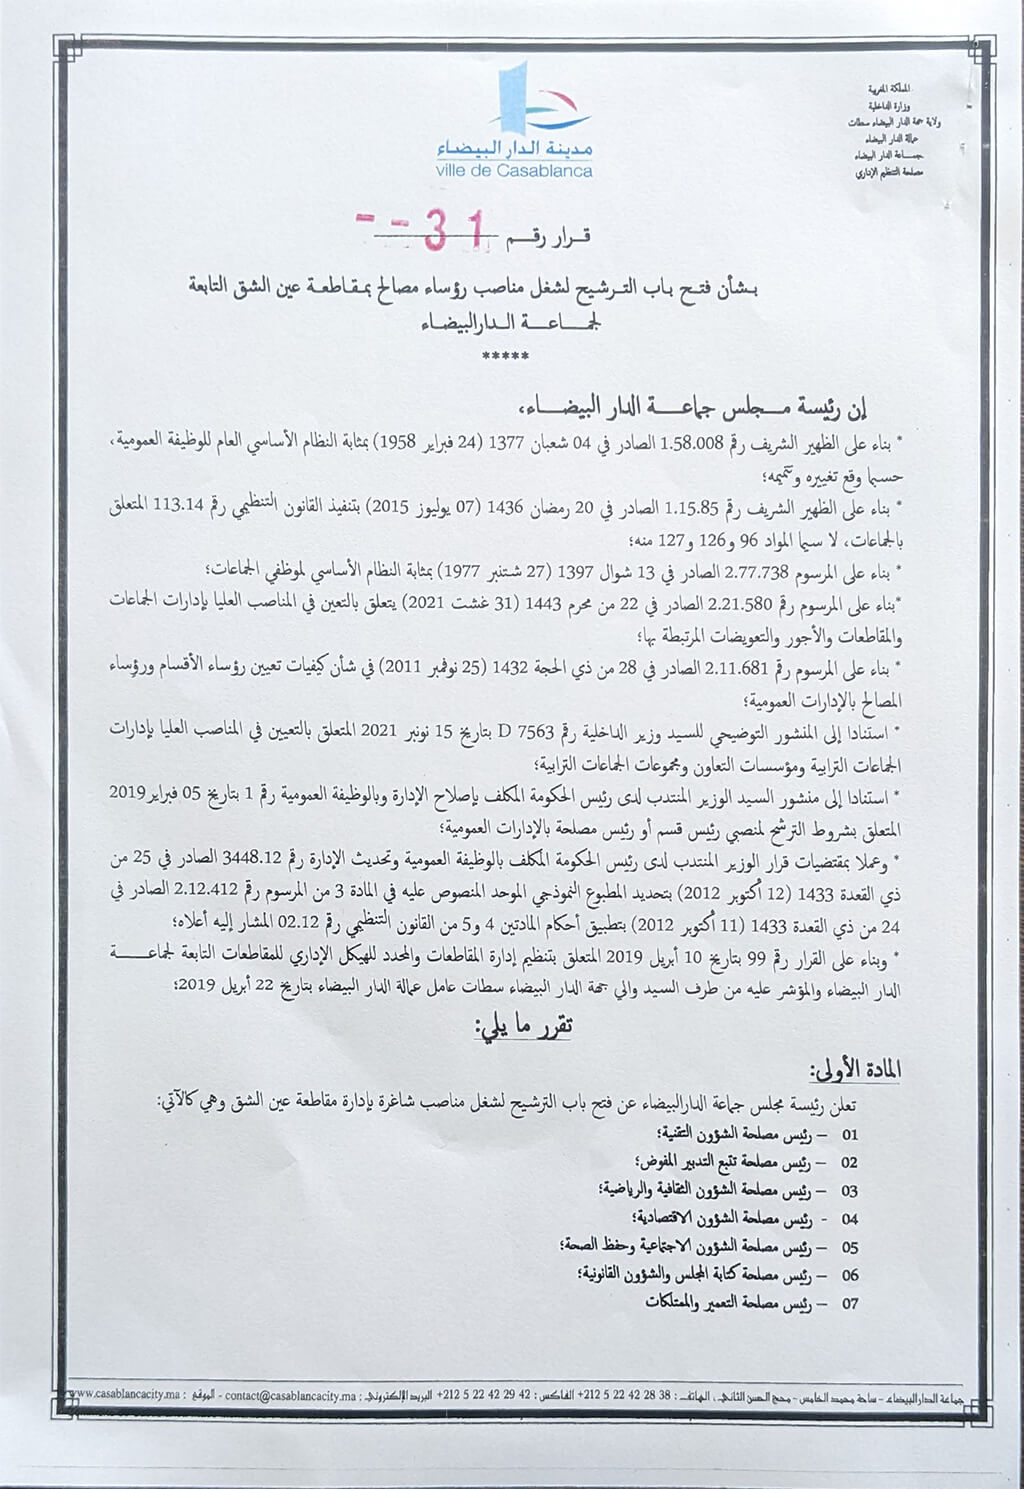 المملكة المغربية
وزارة الداخلية
ولاية جهة الدار البيضاء سطات
عمالة الدار البيضاء
جمـاعة الدار البيضاء
مصلحة التنظيم الإداري
مدينة الدار البيضاء
ville de Casablanca
قـرار رقـم 31 - -
بشأن فتح باب الترشيح لشغل مناصب رؤساء مصالح بمقاطعة عين الشق التابعة
لجمـاعـة الـدارالبيضـاء
*****
إن رئيسة مـجلس جماعـة الدار البيضـاء،
* بناء على الظهير الشريف رقم 1.58.008 الصادر في 04 شعبان 1377 (24 فبراير 1958) بمثابة النظام الأساسي العام للوظيفة العمومية،
حسبما وقع تغييره وتتميمه؛
* بناء على الظهير الشريف رقم 1.15.85 الصادر في 20 رمضان 1436 (07 يوليوز 2015) بتنفيذ القانون التنظيمي رقم 113.14 المتعلق
بالجماعات، لا سيما المواد 96 و126 و127 منه؛
* بناء على المرسوم 2.77.738 الصادر في 13 شوال 1397 (27 شتنبر 1977) بمثابة النظام الأساسي لموظفي الجماعات؛
*بناء على المرسوم رقم 2.21.580 الصادر في 22 من محرم 1443 (31 غشت 2021) يتعلق بالتعين في المناصب العليا بإدارات الجماعات
والمقاطعات والأجور والتعويضات المرتبطة بها؛
* بناء على المرسوم رقم 2.11.681 الصادر في 28 من ذي الحجة 1432 (25 نوفمبر 2011) في شأن كيفيات تعيين رؤساء الأقسام ورؤساء
المصالح بالإدارات العمومية؛
* استنادا إلى المنشور التوضيحي للسيد وزير الداخلية رقم D 7563 بتاريخ 15 نونبر 2021 المتعلق بالتعيين في المناصب العليا بإدارات
الجماعات الترابية ومؤسسات التعاون ومجموعات الجماعات الترابية؛
* استنادا إلى منشور السيد الوزير المنتدب لدى رئيس الحكومة المكلف بإصلاح الإدارة وبالوظيفة العمومية رقم 1 بتاريخ 05 فبراير2019
المتعلق بشروط الترشح لمنصبي رئيس قسم أو رئيس مصلحة بالإدارات العمومية؛
* وعملا بمقتضيات قرار الوزير المنتدب لدى رئيس الحكومة المكلف بالوظيفة العمومية وتحديث الإدارة رقم 3448.12 الصادر في 25 من
ذي القعدة 1433 (12 أكتوبر 2012) بتحديد المطبوع النموذجي الموحد المنصوص عليه في المادة 3 من المرسوم رقم 2.12.412 الصادر في
24 من ذي القعدة 1433 (11 أكتوبر 2012) بتطبيق أحكام المادتين 4 و5 من القانون التنظيمي رقم 02.12 المشار إليه أعلاه؛
* وبناء على القرار رقم 99 بتاريخ 10 أبريل 2019 المتعلق بتنظيم إدارة المقاطعات والمحدد للهيكل الإداري للمقاطعات التابعة لجماعـة
الدار البيضاء والمؤشر عليه من طرف السيد والي جهة الدار البيضاء سطات عامل عمالة الدار البيضاء بتاريخ 22 أبريل 2019؛
تقرر ما يلي:
المادة الأولى:
تعلن رئيسة مجلس جماعة الدارالبيضاء عن فتح باب الترشيح لشغل مناصب شاغرة بإدارة مقاطعة عين الشق وهي كالآتي:
01 – رئيس مصلحة الشؤون التقنية؛
02 – رئيس مصلحة تتبع التدبير المفوض؛
03 – رئيس مصلحة الشؤون الثقافية والرياضية؛
04 - رئيس مصلحة الشؤون الاقتصادية؛
05 – رئيس مصلحة الشؤون الاجتماعية وحفظ الصحة؛
06 – رئيس مصلحة كتابة المجلس والشؤون القانونية؛
07 – رئيس مصلحة التعمير والممتلكات
جماعة الدارالبيضاء – ساحة محمد الخامس – محج الحسن الثاني. الهاتف: 38 28 42 22 5 212+ الفاكس: 42 29 42 22 5 212+ البريد الإلكتروني: contact@casablancacity.ma - الموقع: www.casablancacity.ma